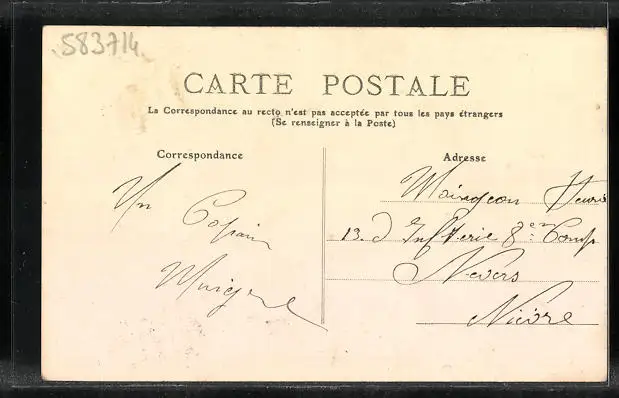 583714
CARTE POSTALE
La Correspondance au recto n'est pas acceptée par tous les pays étrangers
(Se renseigner à la Poste)
Correspondance
Adresse
Un
Copain
13. D Infterie 8e Comp
Nevers
Nièvre